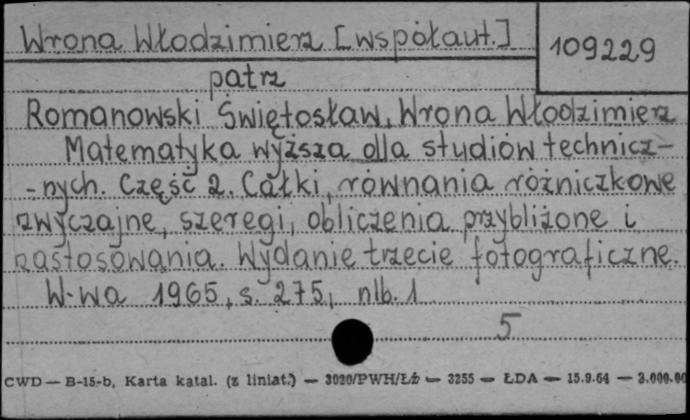 Wrona Włodzimierz [współaut.]
109229
patrz
Romanowski Świętosław, Wrona Włodzimierz
Matematyka wyższa dla studiów technicz-
-nych. Część 2. Całki, równania różniczkowe
zwyczajne, szeregi, obliczenia przybliżone i
zastosowania. Wydanie trzecie fotograficzne.
W-wa 1965, s. 275, nlb. 1
5
CWD — B-15-b, Karta katal. (z liniat.) — 3020/PWH/Łź — 3255 — ŁDA — 15.9.64 — 3.000.00